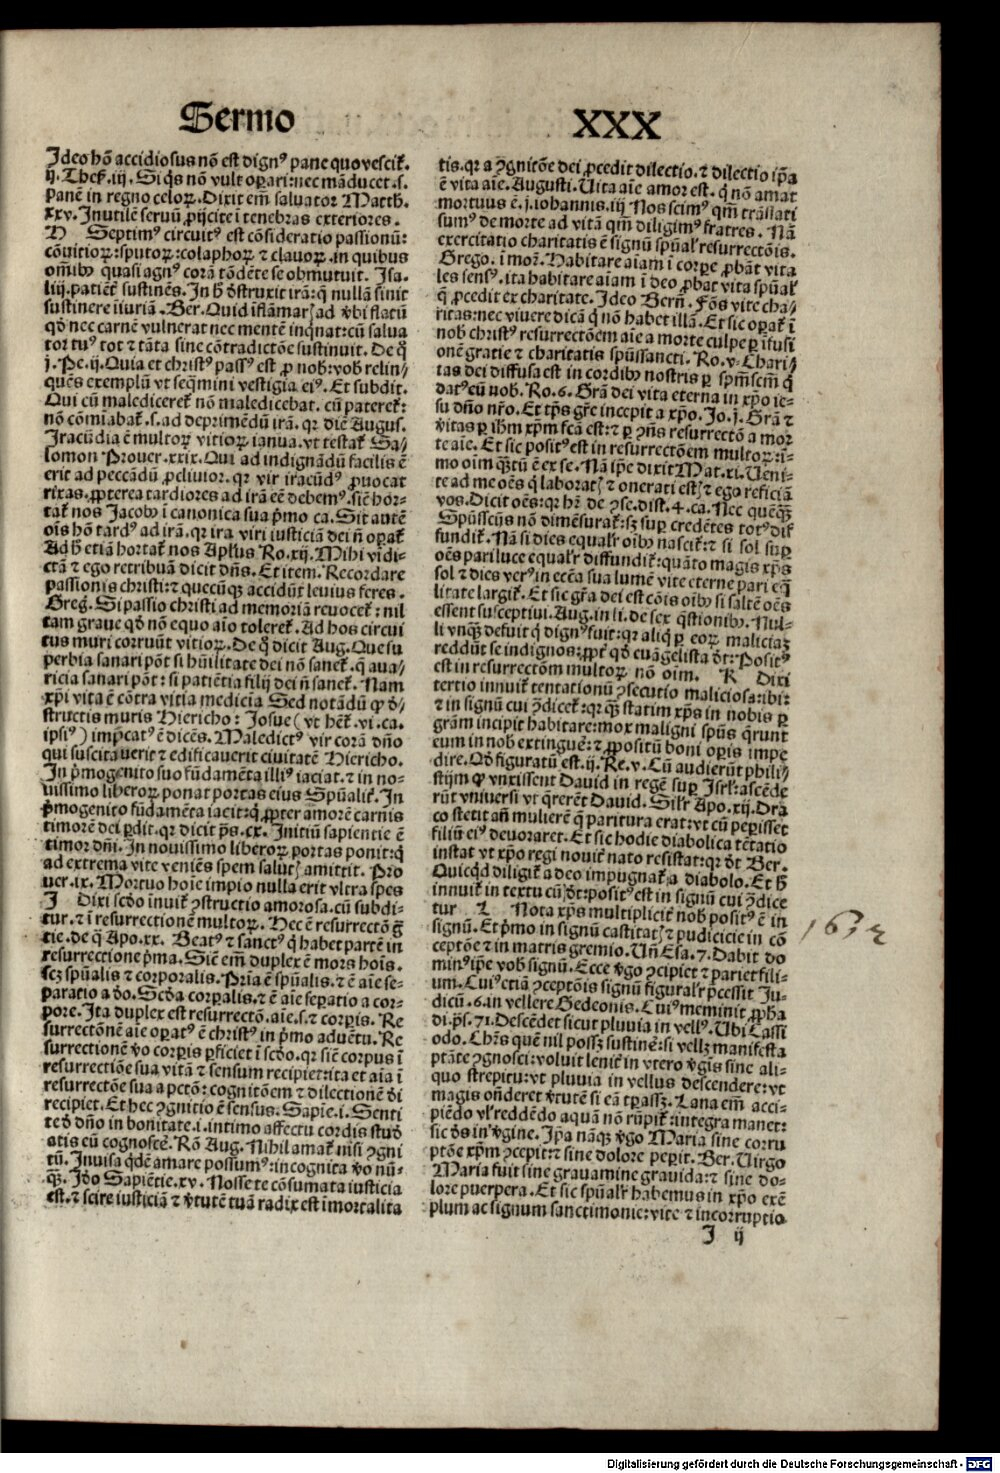 Sermo XXX
Ideo hō accidiosus nō est dignꝰ pane quo vescit̄.
ij. Thes. iij. Si q̇s nō vult oꝑari: nec māducet .s.
Panē in regno celoꝝ. Dixit em̄ saluator Matth.
xxv. Inutilē seruū ꝓijcite ī tenebras exteriores.
H Septimꝰ circuitꝰ est cōsideratio passionū:
cōuitioꝝ: sputoꝝ: colaphoꝝ ⁊ clauoꝝ. in quibus
oīm̄ibꝰ quasi agnꝰ corā tōdēte se obmutuit. Isa.
liij. patiēt̄ sustinēs. In h̄ dr̄struxit irā: q̄ nullā sinit
sustinere iīuriā. Ber. Quid īflāmarꝭ ad v̄bi flatū
qd̄ nec carnē vulnerat nec mentē inq̇nat: cū salua
tor tuꝰ tot ⁊ tāta sine cōtradictōe sustinuit. De q̄
j. Pe. ij. Quia et christꝰ passꝰ est ꝓ nob̄: vob̄ relin/
quēs exemplū vt seq̄mini vestigia eiꝰ. Et subdit.
Qui cū malediceret̄ nō maledicebat. cū pateret̄:
nō cōmīabat̄ .s. ad deprimēdū irā. qr̄ die Augus.
Iracūdia ē multoꝝ vitioꝝ ianua. vt testat̄ Sa/
lomon Prouer. xxix. Qui ad indignādū facilis ē
erit ad peccādū ꝓcliuior. qr̄ vir iracūdꝰ ꝓuocat
rixas. ꝓpterea tardiores ad irā eē debemꝰ. sic̄ hor-
tat̄ nos Jacobꝰ ī canonica sua p̄mo ca. Sit autē
oīs hō tardꝰ ad irā. qr̄ ira viri iusticiā dei n̄ oꝑat̄
Ad h̄ etiā hortat̄ nos Apl̄us Ro. xij. Mihi vīdi-
ctā ⁊ ego retribuā dicit dn̄s. Et item. Recordare
passionis christi: ⁊ quecūqꝫ accidūt leuius feres.
Greḡ. Si passio christi ad memoriā reuocet̄: nil
tam graue qd̄ nō equo aīo toleret̄. Ad hos circui
tus muri corruūt vitioꝝ. De q̄ dicit Aug. Que su
perbia sanari pōt si hūilitate dei nō sanet̄. q̄ aua/
ricia sanari pōt: si patiētia filij dei n̄ sanet̄. Nam
xp̄i vita ē cōtra vitia medicīa Sed notādū ꝙ d̄/
structis muris Hiericho: Josue (vt het̄. vi. ca.
ipsiꝰ) imp̄cat̄ ē dicēs. Maledictꝰ vir corā dn̄o
qui suscitauerit ⁊ edificauerit ciuitatē Hiericho.
In p̄mogenito suo fūdamēta illiꝰ iaciat. ⁊ in no-
uissimo liberoꝝ ponat portas eius Spūalit̄. In
p̄mogenito fūdamēta iacit: q̄ ꝓpter amorē carnis
timorē dei ꝑdit. qr̄ dicit ps̄. cx. Initiū sapientie ē
timor dn̄i. In nouissimo liberoꝝ portas ponit: q̄
ad extrema vite veniēs spem salutꝭ amittit. Pro
uer. ix. Mortuo hoīe impio nulla erit vltra spes
J Dixi scd̄o inuit̄ ꝯstructio amorosa. cū subdi-
tur. ⁊ ī resurrectionē multoꝝ. Hec ē resurrectō ḡ
tie. de q̄ Apo. xx. Beatꝰ ⁊ sanctꝰ q̄ habet partē in
resurrectione p̄ma. Sic̄ em̄ duplex ē mors hoīs.
scꝫ spūalis ⁊ corporalis. Pria ē spūalis. ⁊ ē aīe se-
paratio a d̄o. Scd̄a corꝑalis. ⁊ ē aīe seꝑatio a cor-
pore. Ita duplex est resurrectō. aīe .s. ⁊ corꝑis. Re
surrectōnē aīe oꝑatꝰ ē christꝰ in p̄mo aduētu. Re
surrectionē v̄o corꝑis ꝑficiet ī scd̄o. qr̄ sic̄ corpus ī
resurrectiōe sua vitā ⁊ sensum recipiet: ita et aīa ī
resurrectōe sua a pctō: cognitōem ⁊ dilectionē d̄i
recipiet. Et hec ꝯgnitio ē sensus. Sapīe. i. Senti
te d̄ dn̄o in bonitate .i. intimo affectu cordis stud̄
atis eū cognoscē. Rō Aug. Nihil amat̄ nisi ꝯgni
tū. Inuisa q̄dē amare possumꝰ: incognita v̄o nū-
qꝫ. Id̄o Sapiētie. xv. Nosse te cōsumata iusticia
est. ⁊ scire iusticiā ⁊ v̄tutē tuā radix est īmortalita
tis. qr̄ a ꝯgnitōe dei ꝓcedit dilectio. ⁊ dilectio ip̄a
ē vita aīe. Augusti. Uita aīe amor est. q̇ nō amat
mortuus ē. j. iohannis. iij Nos scimꝰ qm̄ trāslati
sumꝰ de morte ad vitā qm̄ diligimꝰ fratres. Nā
exercitatio charitatis ē signū spūal̄ resurrectōis.
Grego. ī mor̄. Habitare aīam ī corꝑe ꝓbāt vita
les sensꝰ. ita habitare aīam ī deo ꝓbat vita spūal̄
q̄ ꝓcedit ex charitate. Ideo Bern̄. Fōs vite cha/
ritas: nec viuere dicā q̄ nō habet illā. Et sic oꝑat̄ ī
nob̄ christꝰ resurrectōem aīe a morte culpe ꝑ īfusi
onē gratie ⁊ charitatis spūssancti. Ro. v. Chari/
tas dei diffusa est in cordibꝰ nostris ꝑ spm̄scm̄ q̄
datꝰ ē nob̄. Ro. 6. Grā dei vita eterna in xp̄o ie-
su dn̄o nr̄o. Et tꝑs gr̄e incepit a xp̄o. Jo. j. Grā ⁊
v̄itas ꝑ ih̄m xp̄m fcā est: ⁊ ꝑ ꝯn̄s resurrectō a mor
te aīe. Et sic positꝰ est in resurrectōem multoꝝ: ī-
mo oīm q̄ꝫtū ē ex se. Nā ip̄e dixit Mat. xi. Ueni-
te ad me oēs q̇ laboratꝭ ⁊ onerati estꝭ ⁊ ego reficiā
vos. Dicit oēs: qr̄ hr̄ de ꝯse. dist. 4. ca. Nec quēqꝫ
Spūsscūs nō dimēsurat̄: sꝫ suꝑ credētes totꝰ dif
fundit̄. Nā si dies equalr̄ oībꝰ nascit̄: ⁊ si sol suꝑ
oēs pari luce equalr̄ diffundit̄: quāto magis xp̄s
sol ⁊ dies verꝰ in eccīa sua lumē vite eterne pari eq̄
litate largit̄. Et sic gr̄a dei est cōis oībꝰ si saltē oēs
essent susceptiui. Aug. in li. de sex q̄stionibꝰ. Nul-
li vnqꝫ defuit q̇ dignꝰ fuit: qr̄ aliq̄ ꝑ eoꝝ maliciaꝫ
reddūt se indignos: ꝓpt̄ qd̄ euāgelista d̄t: Positꝰ
est in resurrectōm multoꝝ nō oīm. K Dixi
tertio innuit̄ tentationū ꝯsecutio maliciosa: ibi:
⁊ in signū cui ꝯdicet̄: qr̄ qꝫ statim xp̄s in nobis ꝑ
grām incipit habitare: mox maligni spūs q̄runt
eum in nob̄ extinguē: ⁊ ꝓpositū boni oꝑis impe
dire. Qd̄ figuratū est. ij. Re. v. Cū audierūt phili/
stijm ꝙ vnxissent Dauid in regē suꝑ Isrl̄: ascēde
rūt vniuersi vt q̄rerēt Dauid. Silr̄ Apo. xij. Dra
co stetit an̄ mulierē q̄ paritura erat: vt cū peꝑisset
filiū eiꝰ deuoraret. Et sic hodie diabolica tētatio
instat vt xp̄o regi nouit̄ nato resistat: qr̄ d̄t Ber.
Quicq̄d diligit̄ a deo impugnat̄ a diabolo. Et h̄
innuit̄ in textu cū d̄t: positꝰ est in signū cui ꝯdice
tur L Nota xp̄s multiplicit̄ nob̄ positꝰ ē in
signū. Et p̄mo in signū castitatꝭ ⁊ pudicicie in cō
ceptōe ⁊ in matris gremio. Un̄ Esa. 7. Dabit do
minꝰ ip̄e vob̄ signū. Ecce v̄go ꝯcipiet ⁊ pariet fili-
um. Cuiꝰ etiā ꝯceptōis signū figuralr̄ p̄cessit Ju-
dicū. 6. in vellere Gedeonis. Cuiꝰ meminit ꝓpha
Dauid. ps̄. 71. Descēdet sicut pluuia in vellꝰ. Ubi Cassi
odo. Chr̄s quē nil possꝫ sustinē: si vellꝫ manifesta
ptāte ꝯgnosci: voluit lenit̄ in vtero v̄gīs sine ali-
quo strepitu: vt pluuia in vellus descendere: vt
magis on̄deret v̄tutē si eā trāssꝫ. Lana em̄ acci-
piēdo vl̄ reddēdo aquā nō rūpit̄: integra manet:
sic d̄s in v̄gine. Ip̄a nāqꝫ v̄go Maria sine corru
ptōe xp̄m ꝯcepit: ⁊ sine dolore peꝑit. Ber. Uirgo
Maria fuit sine grauamine grauida: ⁊ sine do-
lore puerpera. Et sic spūalr̄ habemus in xp̄o exē
plum ac signum sanctimonie: vite ⁊ incorruptio
J ij
1632
Digitalisierung gefördert durch die Deutsche Forschungsgemeinschaft - DFG